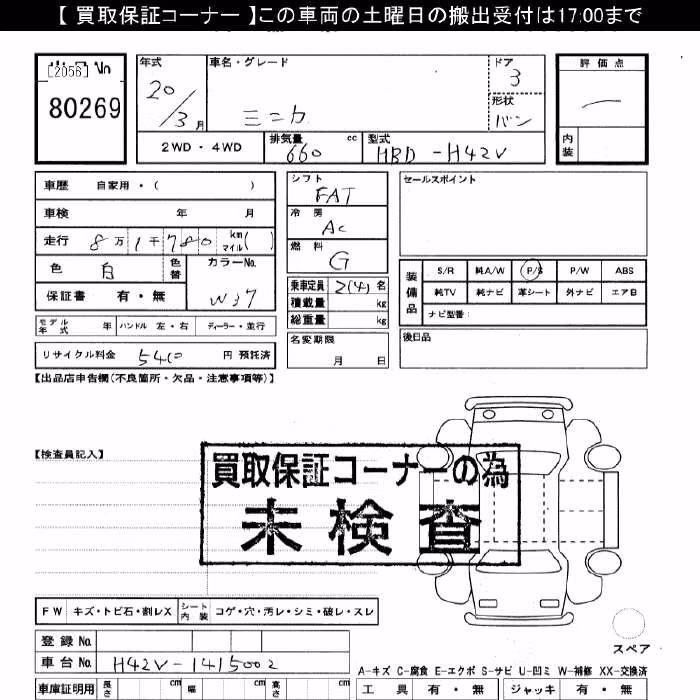 【 買取保証コーナー 】この車両の土曜日の搬出受付は17:00まで
[2056]
80269
年式
20/3月
車名・グレード
ミニカ
ドア
3
形状
バン
評価点
内装
2WD ・ 4WD
排気量 660 cc
型式 HBD -H42V
車歴 自家用・( )
車検 年 月
走行 8万1千780 km マイル( )
色 白 色替
カラーNo. W37
保証書 有・無
モデル年式 年 ハンドル 左・右 ディーラー・並行
リサイクル料金 円 預託済
シフト FAT
冷房 AC
燃料 G
乗車定員 2(4)名
積載量 kg
総重量 kg
名変期限 月 日
セールスポイント
装備品
S/R 純A/W P/S P/W ABS
純TV 純ナビ 革シート 外ナビ エアB
ナビ型番:
後日品
【出品店申告欄(不良箇所・欠品・注意事項等)】
【検査員記入】
買取保証コーナーの為
未検査
FW キズ・トビ石・割レX シート内装 コゲ・穴・汚レ・シミ・破レ・スレ
スペア
登録No.
車台No. H42V-1415002
A-キズ C-腐食 E-エクボ S-サビ U-凹ミ W-補修 XX-交換済
車庫証明用 長さ cm 幅 cm 高さ cm
工具 有・無 ジャッキ 有・無